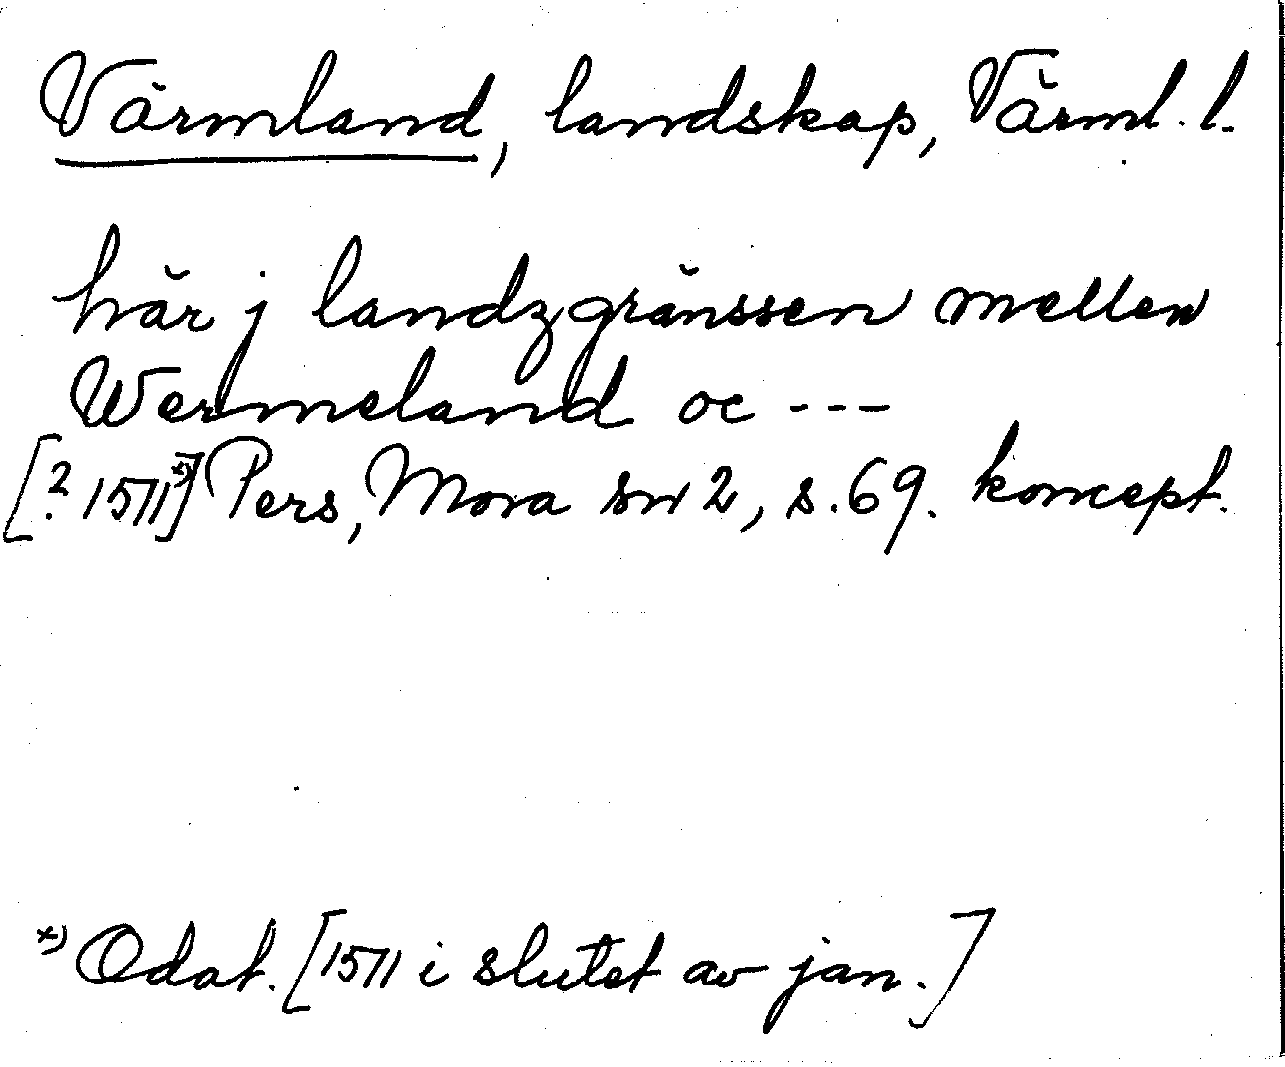 Värmland, landskap, Värml. l.
här j landzgränssen mellen
Wermeland oc ---
[? 1571*)] Pers, Mora sn 2, s. 69. koncept.
*) Odat. [1571 i slutet av jan.]